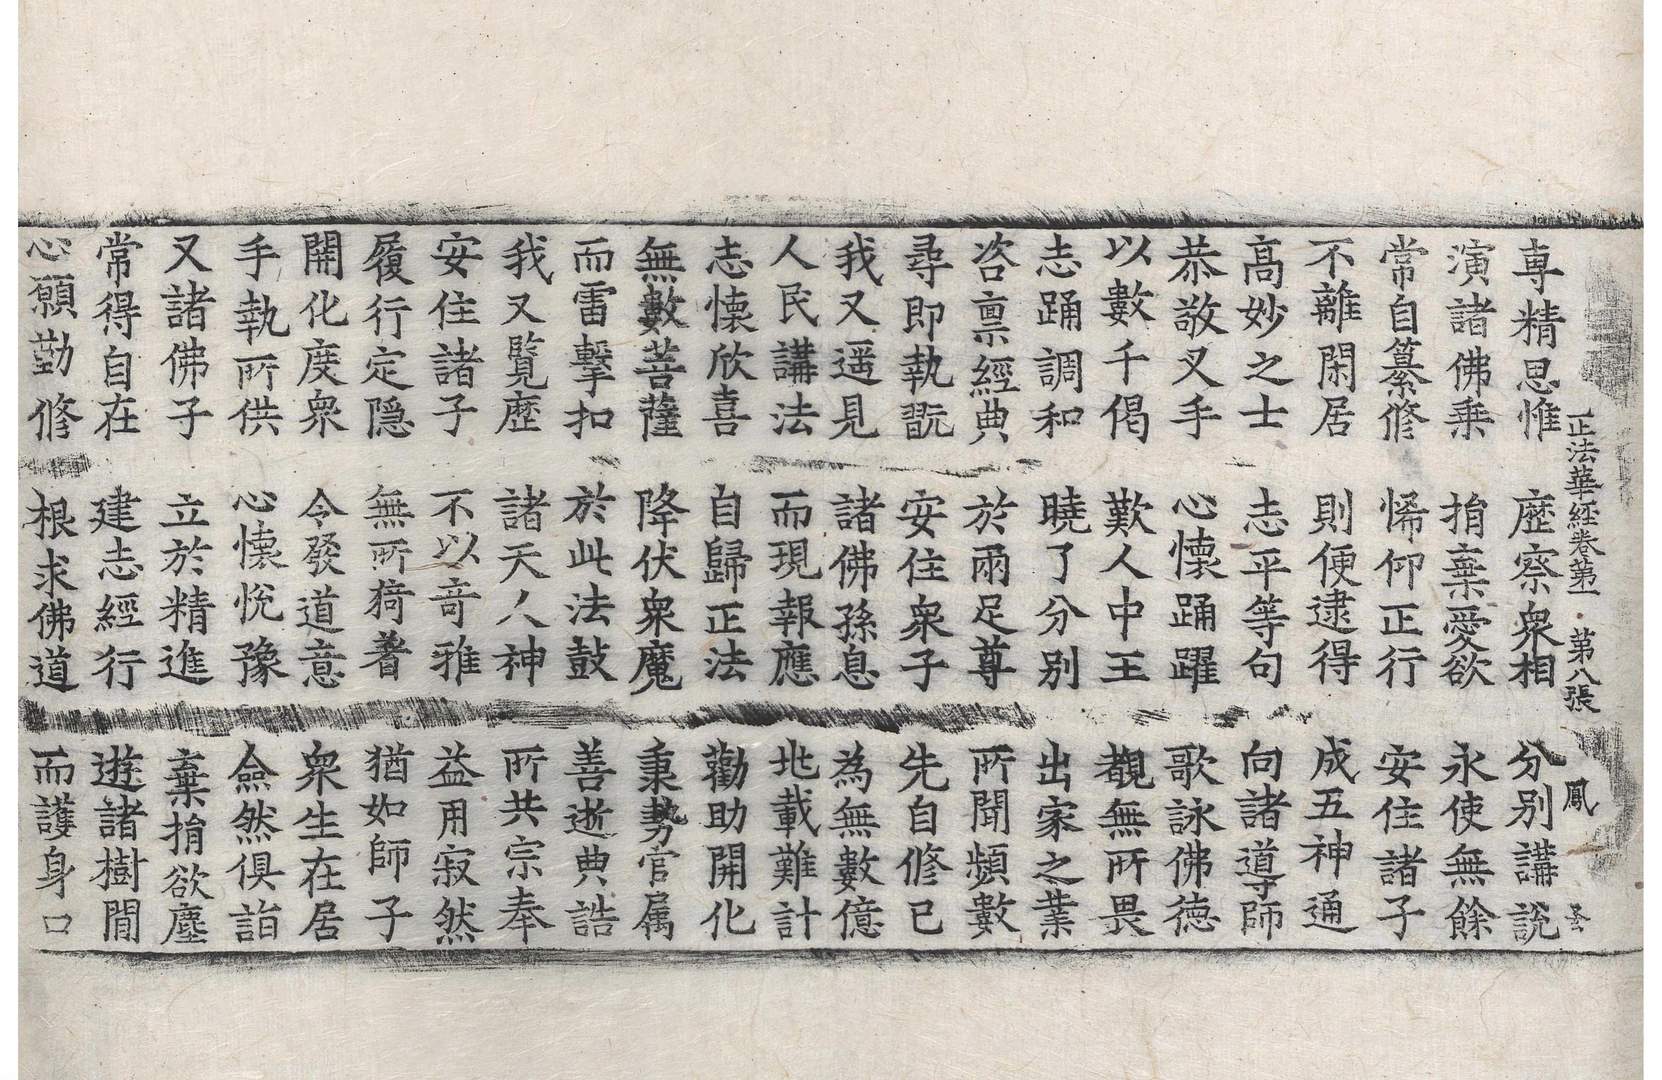 正法華經卷第一 第八張 鳳
專精思惟 歷察衆相 分別講說
演諸佛乘 捐棄愛欲 永使無餘
常自纂修 悕仰正行 安住諸子
不離閑居 則便逮得 成五神通
高妙之士 志平等句 向諸導師
恭敬叉手 心懷踊躍 歌詠佛德
以數千偈 歎人中王 覩無所畏
志踊調和 曉了分別 出家之業
咨禀經典 於兩足尊 所聞頻數
尋即執翫 安住衆子 先自修已
我又遥見 諸佛孫息 為無數億
人民講法 而現報應 地載難計
志懷欣喜 自歸正法 勸助開化
無數菩薩 降伏衆魔 秉勢官属
而雷擊扣 於此法鼓 善逝典誥
我又覽歷 諸天人神 所共宗奉
安住諸子 不以竒雅 益用寂然
履行定隐 無所猗著 猶如師子
開化度衆 令發道意 衆生在居
手執所供 心懷悅豫 僉然俱詣
又諸佛子 立於精進 棄捐欲塵
常得自在 建志經行 遊諸樹閒
心願勤修 根求佛道 而護身口